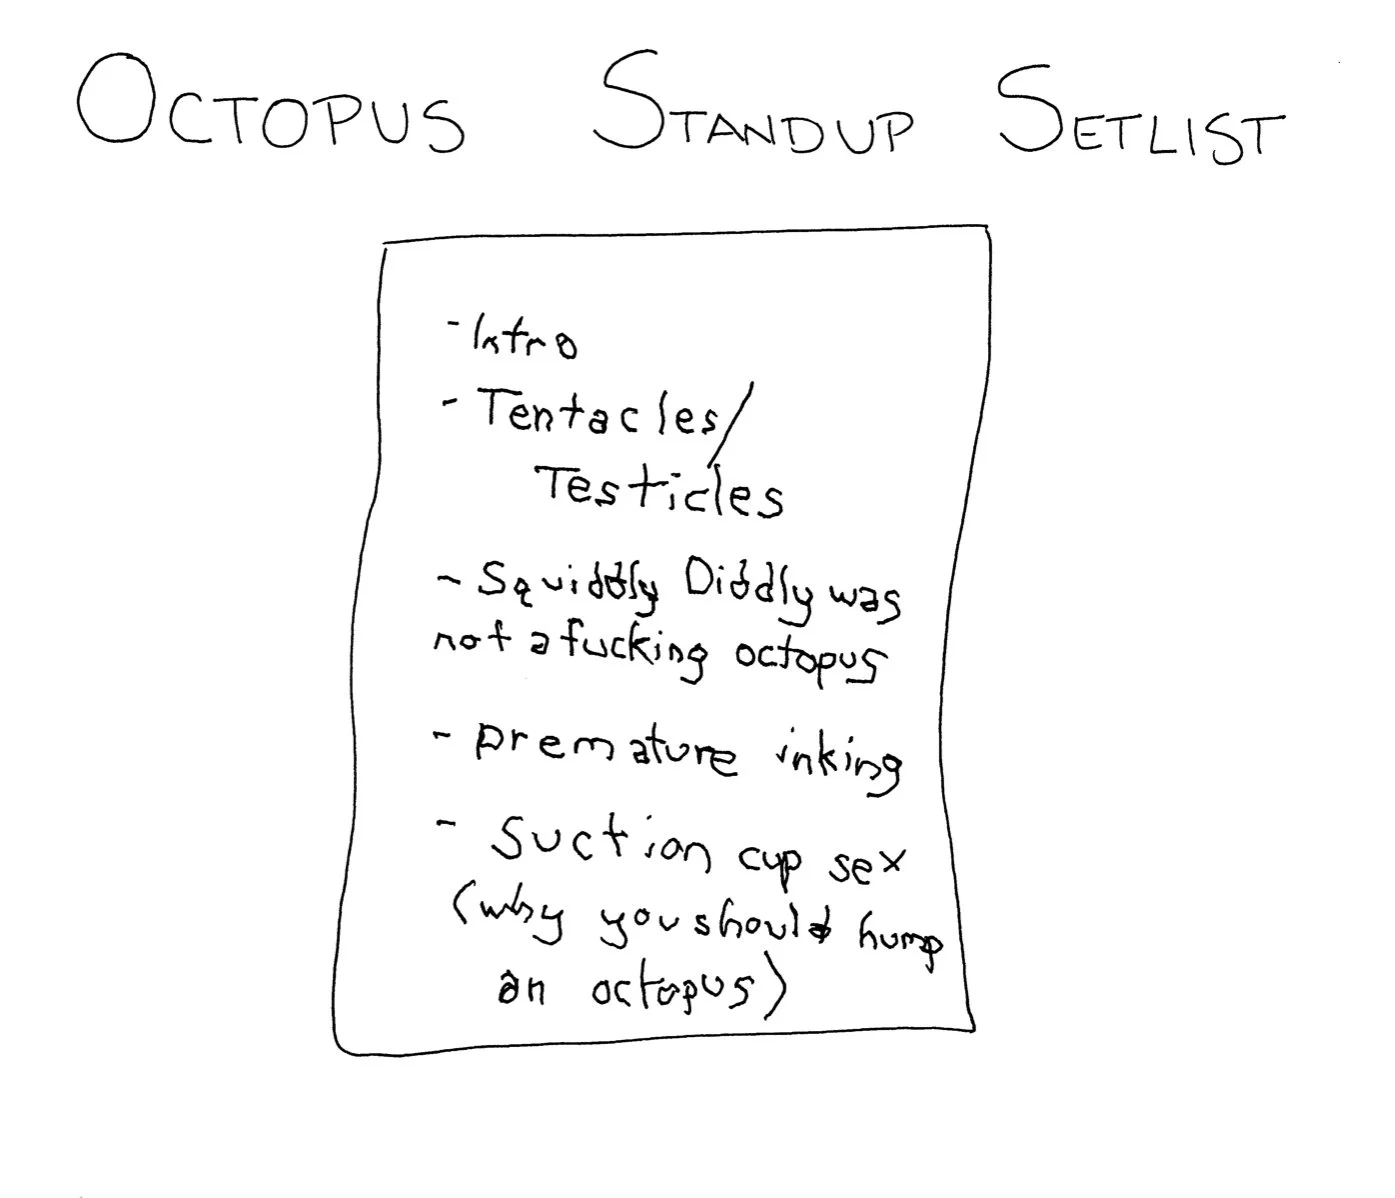 OCTOPUS STANDUP SETLIST
- Intro
- Tentacles/
Testicles
- Squiddly Diddly was
not a fucking octopus
- premature inking
- suction cup sex
(why you should hump
an octopus)